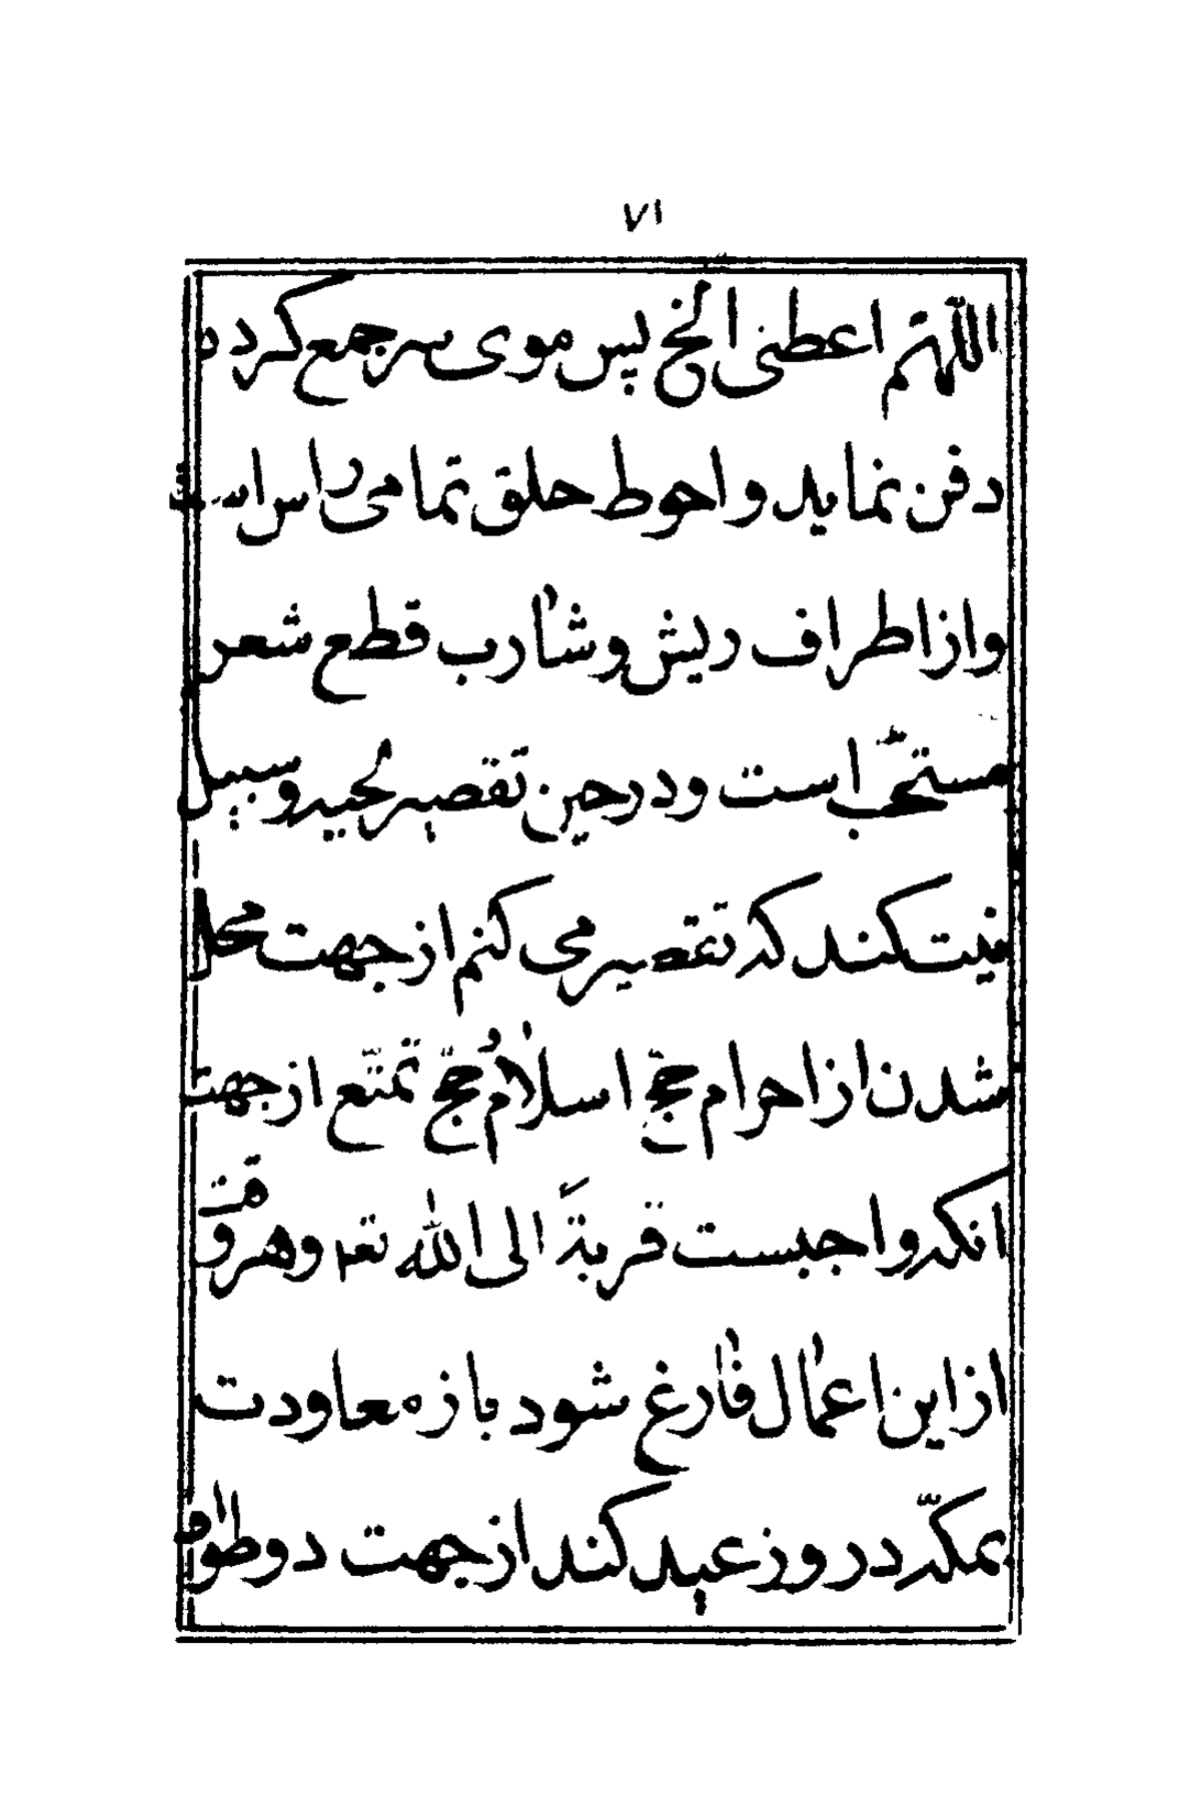 ۷۱
اللّهمّ اعطنی الخ پس موی سر جمع کرده
دفن نماید و احوط حلق تمامی راس است
و از اطراف ریش و شارب قطع شعر
مستحّب است و در حین تقصیر لحیه و سبیل
نیت کند که تقصیر می کنم از جهت محل
شدن از احرام حجّ اسلام حجّ تمتّع از جهت
انکه واجبست قربةً الی الله تعم و هر وقت
از این اعمال فارغ شود باز معاودت
بمکّه در روز عید کند از جهت دو طواف